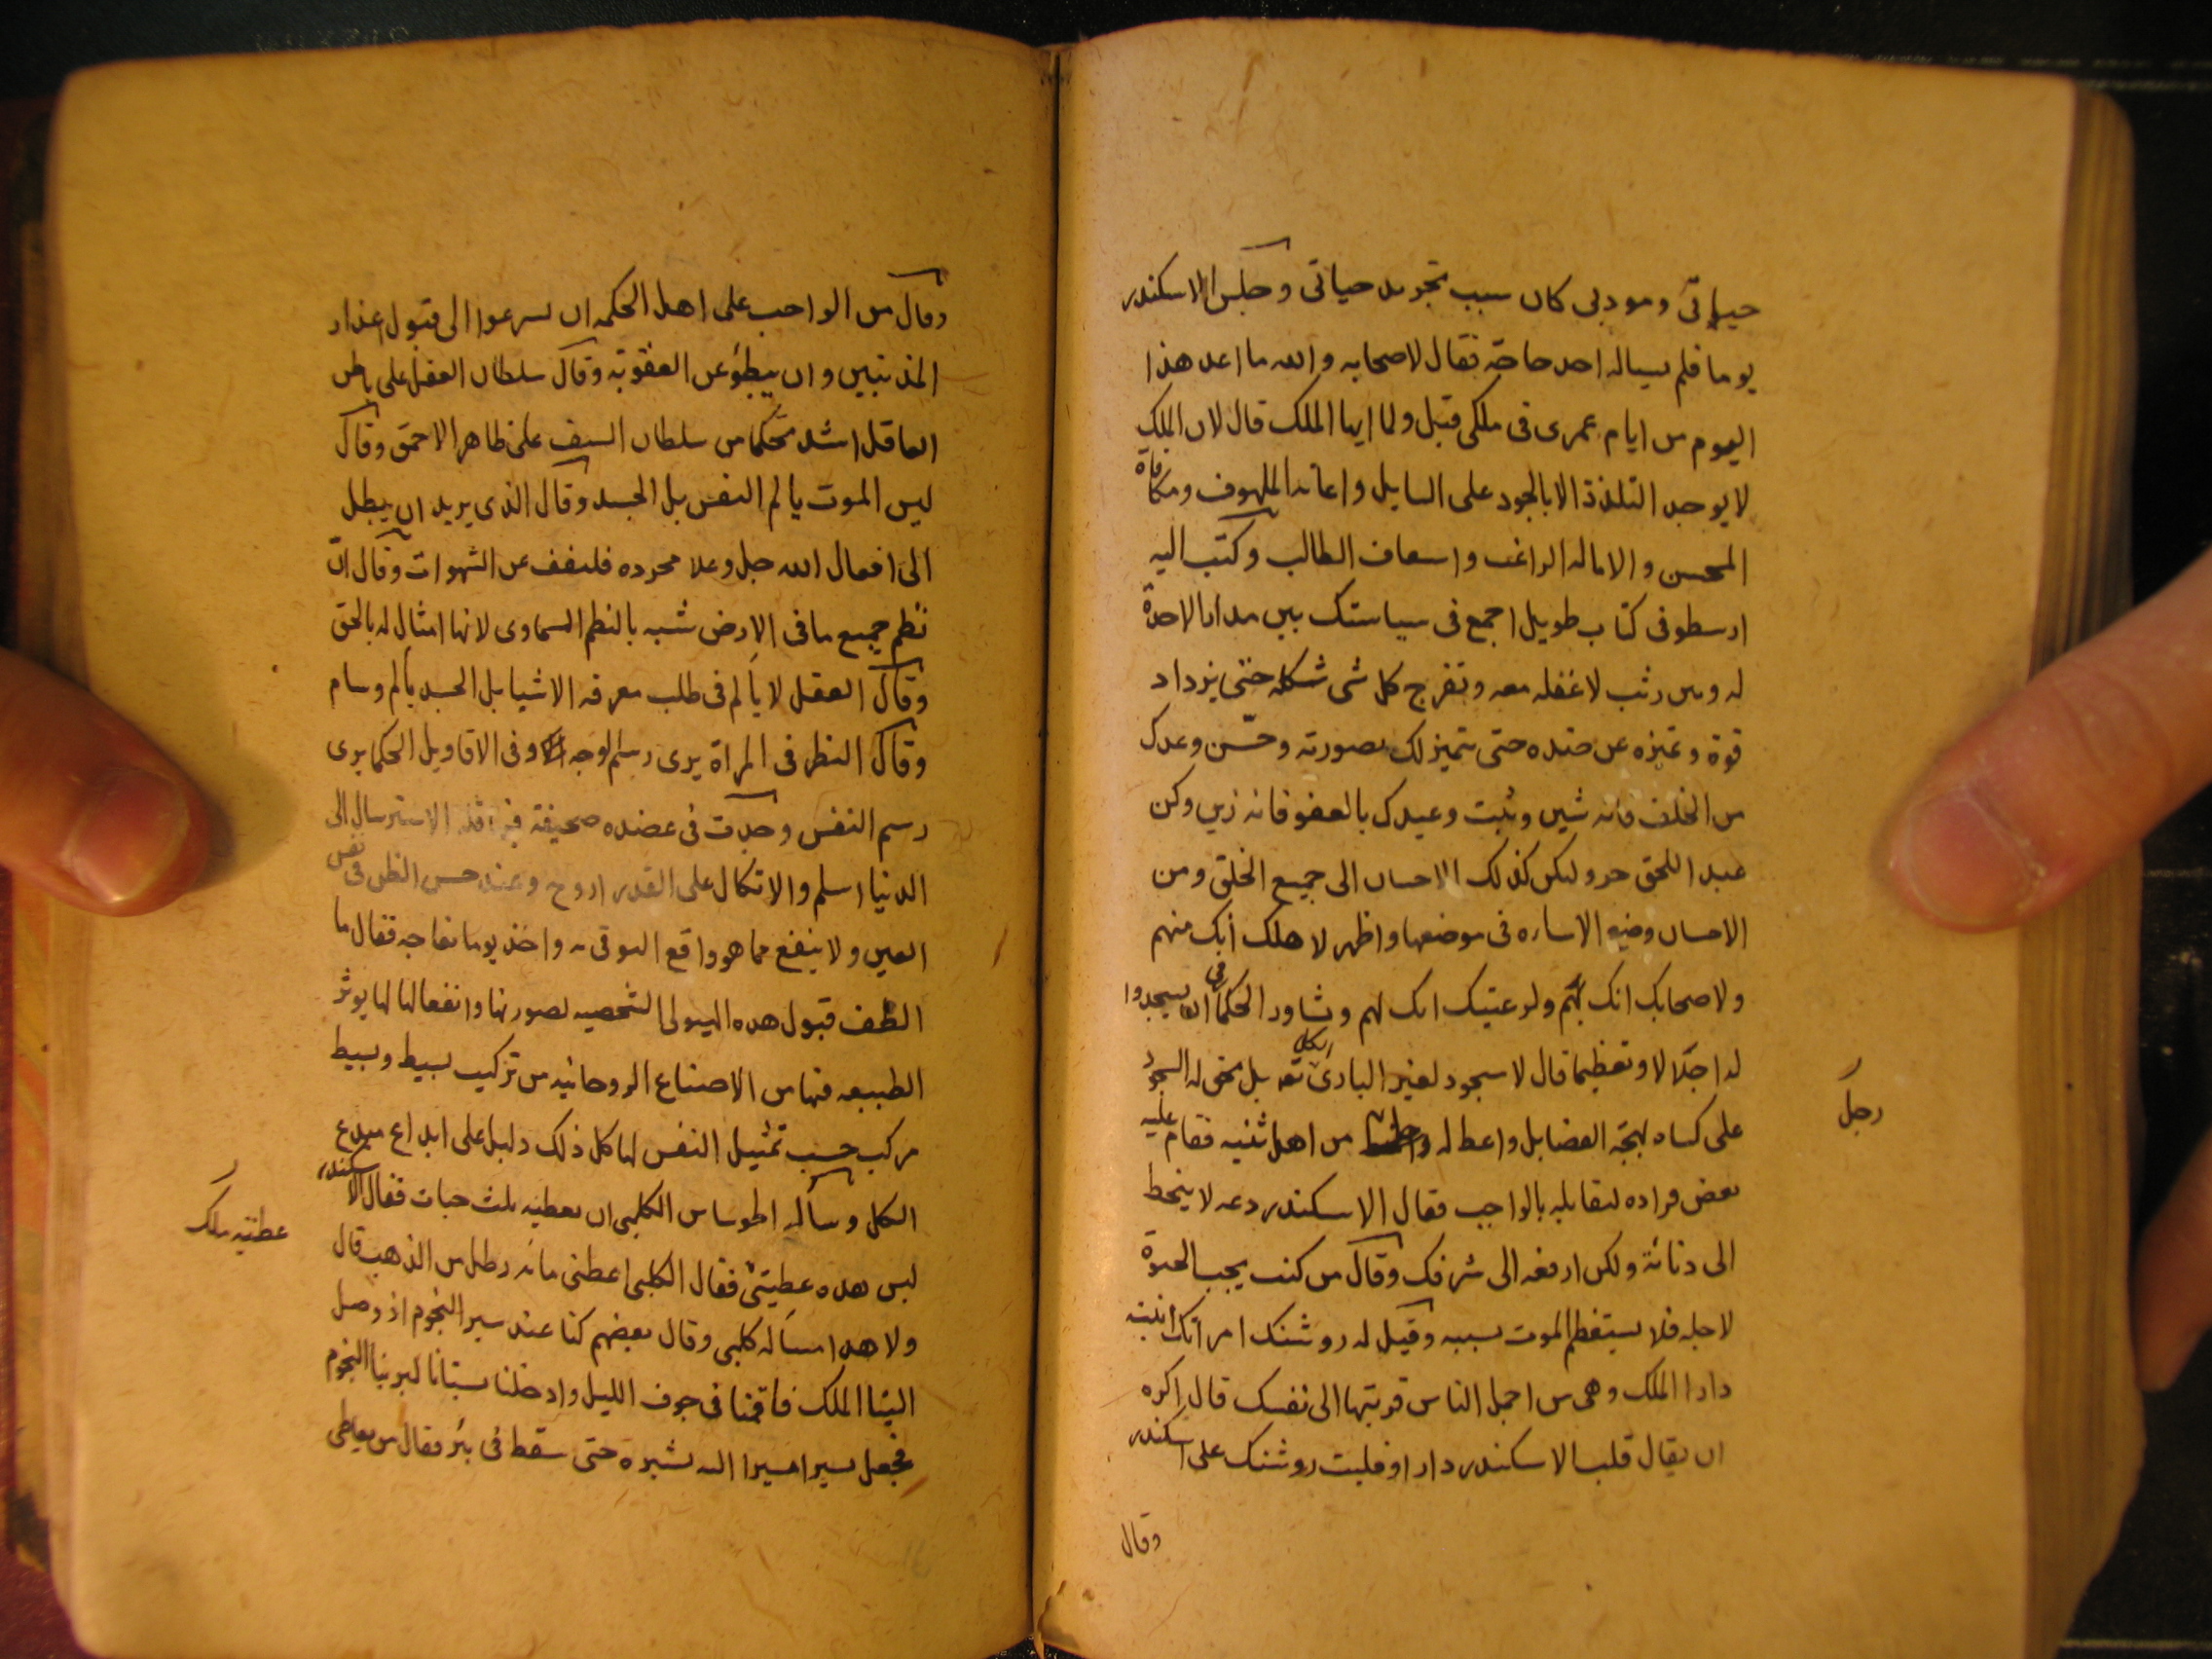 حياتى ومودبى كان سبب تجويد حياتى وجلس الاسكندر
يوما فلم يساله احد حاجة فقال لاصحابه والله ما اعد هذا
اليوم من ايام عمرى فى ملكى قيل ولما ايها الملك قال لان الملك
لا يوجد التلذذ الا بالجود على السايل واعانه الملهوف ومكافاة
المحسن والا مالة الراغب واسعاف الطالب وكتب اليه
ارسطو فى كتاب طويل اجمع فى سياستك بين بدار لا حدة
له وبين رثب لا غفله معه وتفرج كل شى شكله حتى يزداد
قوة وتميزه عن ضده حتى يتميز لك بصورته وحسّن وعدك
من الخلف فانه شين وثبت وعيدك بالعفو فانه زين وكن
عبد اللحق حر وليكن كذلك الاحسان الى جميع الخلق ومن
الاحسان وضع الاساره فى موضعها واظهر لاهلك أنك منهم
ولاصحابك انك بهم ولرعيتك انك لهم وشاور الحكما فى ان يسجدوا
له اجلالا وتعظيما قال لا سجود لغير البارى الكل تعه بل يحق له السجود
على كساه بهجة الفضايل واعطاله من اهل ثنيه فقام عليه
بعض قواده ليقابله بالواجب فقال الاسكندر دعه لا ينحط
الى دنائة ولكن ارفعه الى شرفك وقال من كنت يحب الحيوة
لاجله فلا يستفظم الموت بسببه وقيل له روشنك امراتك ابنته
دارا الملك وهى من اجمل الناس قربتها الى نفسك قال اكره
ان يقال قلب الاسكندر دارا وغلبت روشنك على اسكندر
رجل
وقال
وقال من الواجب على اهل الحكمه ان يسرعوا الى قبول اعذار
المذنبين وان يبطؤ عن العقوبة وقال سلطان العقل على باطن
العاقل اشد تحكما من سلطان السيف على ظاهر الاحمق وقال
ليس الموت يالم النفس بل الجسد وقال الذى يريد ان يبطل
الى افعال الله جل وعلا مجرده فليعف عن الشهوات وقال انّ
نظم جميع ما فى الارض شبه بالنظم السماوى لانها امثال له بالحق
وقال العقل لا يألم فى طلب معرفه الاشيا بل الجسد يألم وسام
وقال النظر فى المراة يرى رسم الوجه وفى الاقاويل الحكما يرى
رسم النفس وجدت فى عضده صحيفة فيها قله الاسترسال الى
الدنيا اسلم والاتكال على القدر اروح وعند حسن الظن فى نفس
العين ولا ينفع مما هو واقع التوقى به واخذ يوما تفاحه فقال ما
الطف قبول هذه الهيولى الشخصيه لصورتها وانفعالها لما يوثر
الطبيعه فيها من الاصناع الروحانيه من تركيب بسيط وبسيط
مركب حسب تمثيل النفس لها كل ذلك دليل على ابداع مبدع
الكل وساله اطوساس الكلبى ان يعطيه ثلث حبات فقال الاسكندر
ليس هذه عطيتى فقال الكلبى اعطنى مائه رطل من الذهب قال
ولا هذا مساله كلبى وقال بعضهم كنا عند سير النجوم اذ وصل
الينا الملك فاقمنا فى جوف الليل وادخلنا بستانا ليرينا النجوم
فجعل يسيرا مسيرا اله بشيره حتى سقط فى بئر فقال من يعاطى
عطيته ملك